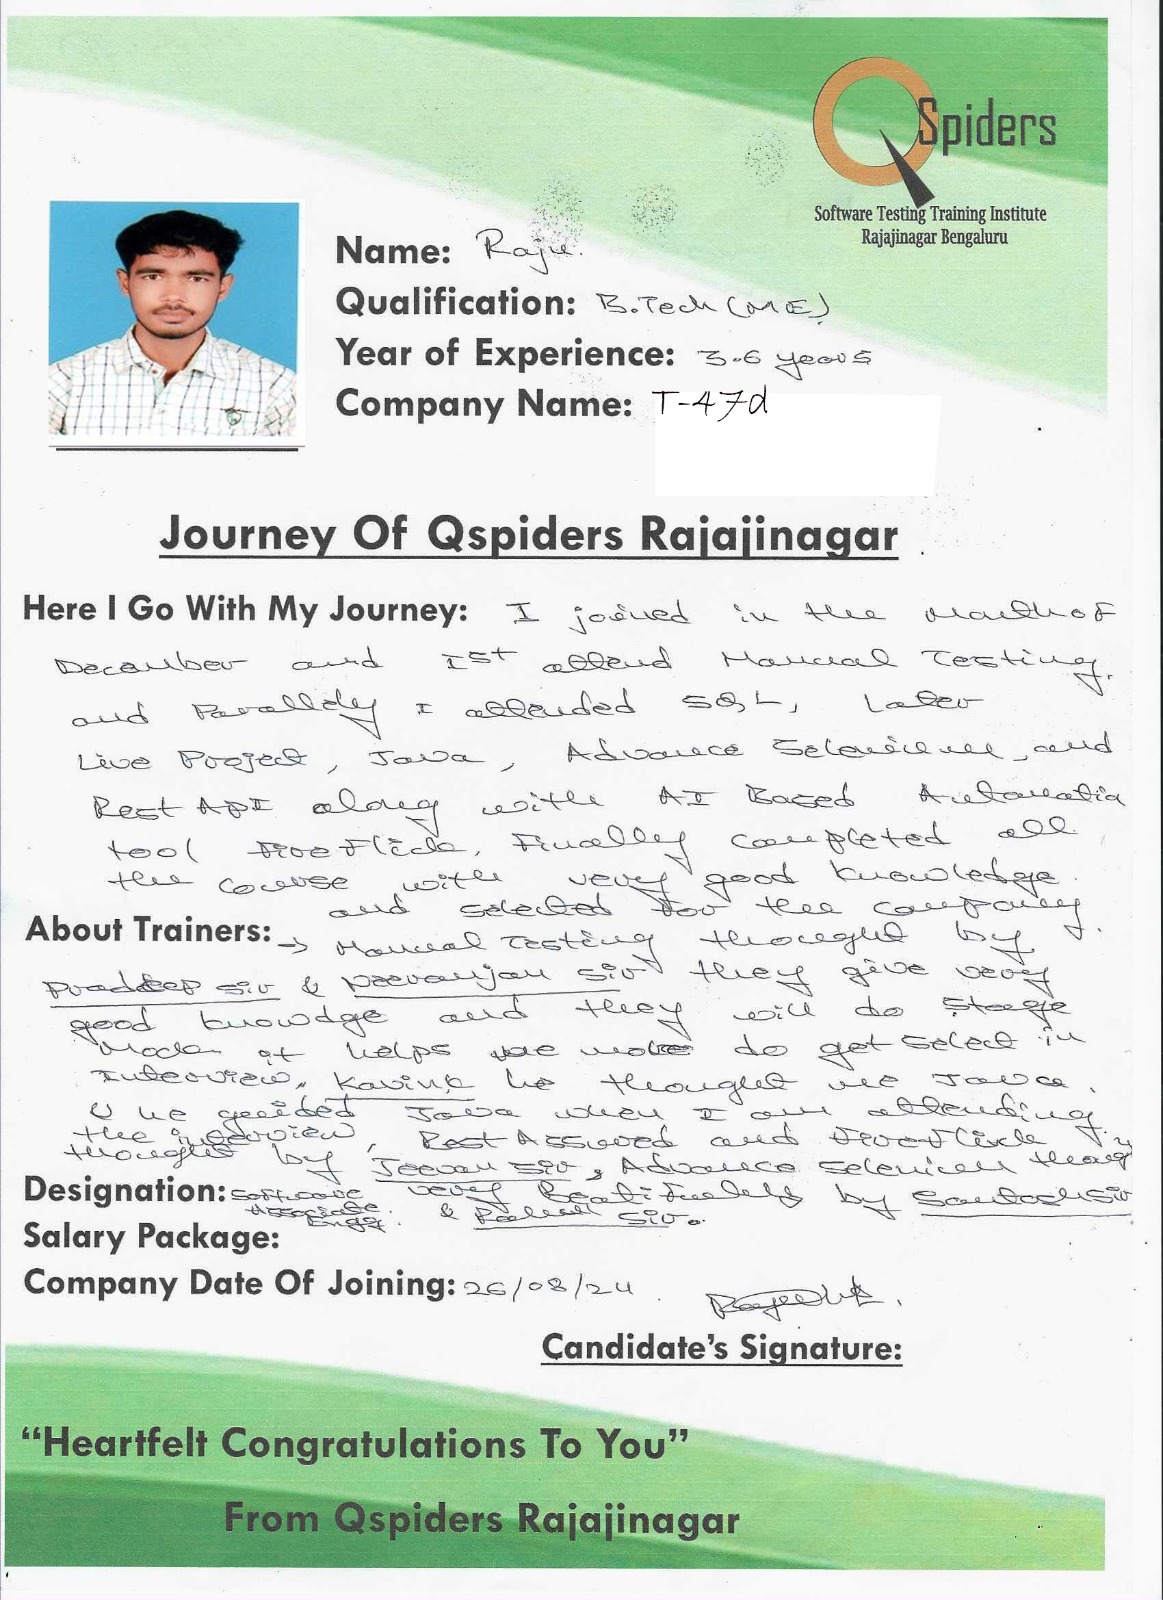 QSpiders
Software Testing Training Institute
Rajajinagar Bengaluru
Name: Raju.
Qualification: B.Tech (ME)
Year of Experience: 3.6 years
Company Name: T-47d
Journey Of Qspiders Rajajinagar
Here I Go With My Journey: I joined in the Month of
December and Ist attend Manual Testing.
and Parallely I attended SQL, Later
Live Project, Java, Advance Selenium, and
Rest API along with AI Based Automatio
tool FireFlick. Finally completed all
the course with very good knowledge.
and selected for the company.
About Trainers: → Manual Testing thought by
Pradeep sir & Neeranjan sir they give very
good knowdge and they will do stage
Mock it helps me more do get select in
Interview. Kavink he thought me Java.
& he guided Java when I am attending
the interview, Rest Assured and FireFlick
thought by Jeevan sir, Advance Selenium thoug
very Beatifully by Santosh sir
& Rakesh sir.
Designation: Software
Associate
Engg.
Salary Package:
Company Date Of Joining: 26/08/24
Candidate's Signature:
“Heartfelt Congratulations To You”
From Qspiders Rajajinagar